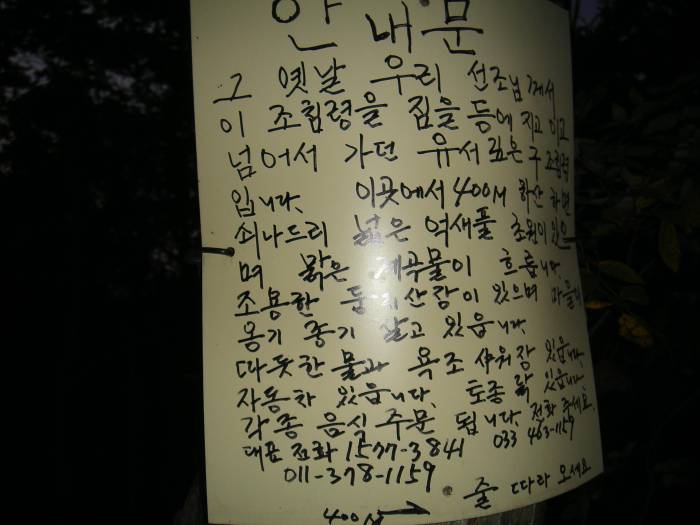 안내문
그 옛날 우리 선조님께서
이 조침령을 짐을 등에 지고 이고
넘어서 가던 유서 깊은 구 조침령
입니다. 이곳에서 400M 하산 하면
쇠나드리 넓은 억새풀 초원이 있으
며 맑은 계곡물이 흐릅니다.
조용한 산장이 있으며 마을이
옹기 종기 살고 있읍니다.
따뜻한 물과 욕조 샤워장 있읍니다.
자동차 있읍니다. 토종 닭 있읍니다.
각종 음식 주문 됩니다. 전화 주세요.
대표 전화 1577-3841 033 463-1159
011-378-1159
줄 따라 오세요
400